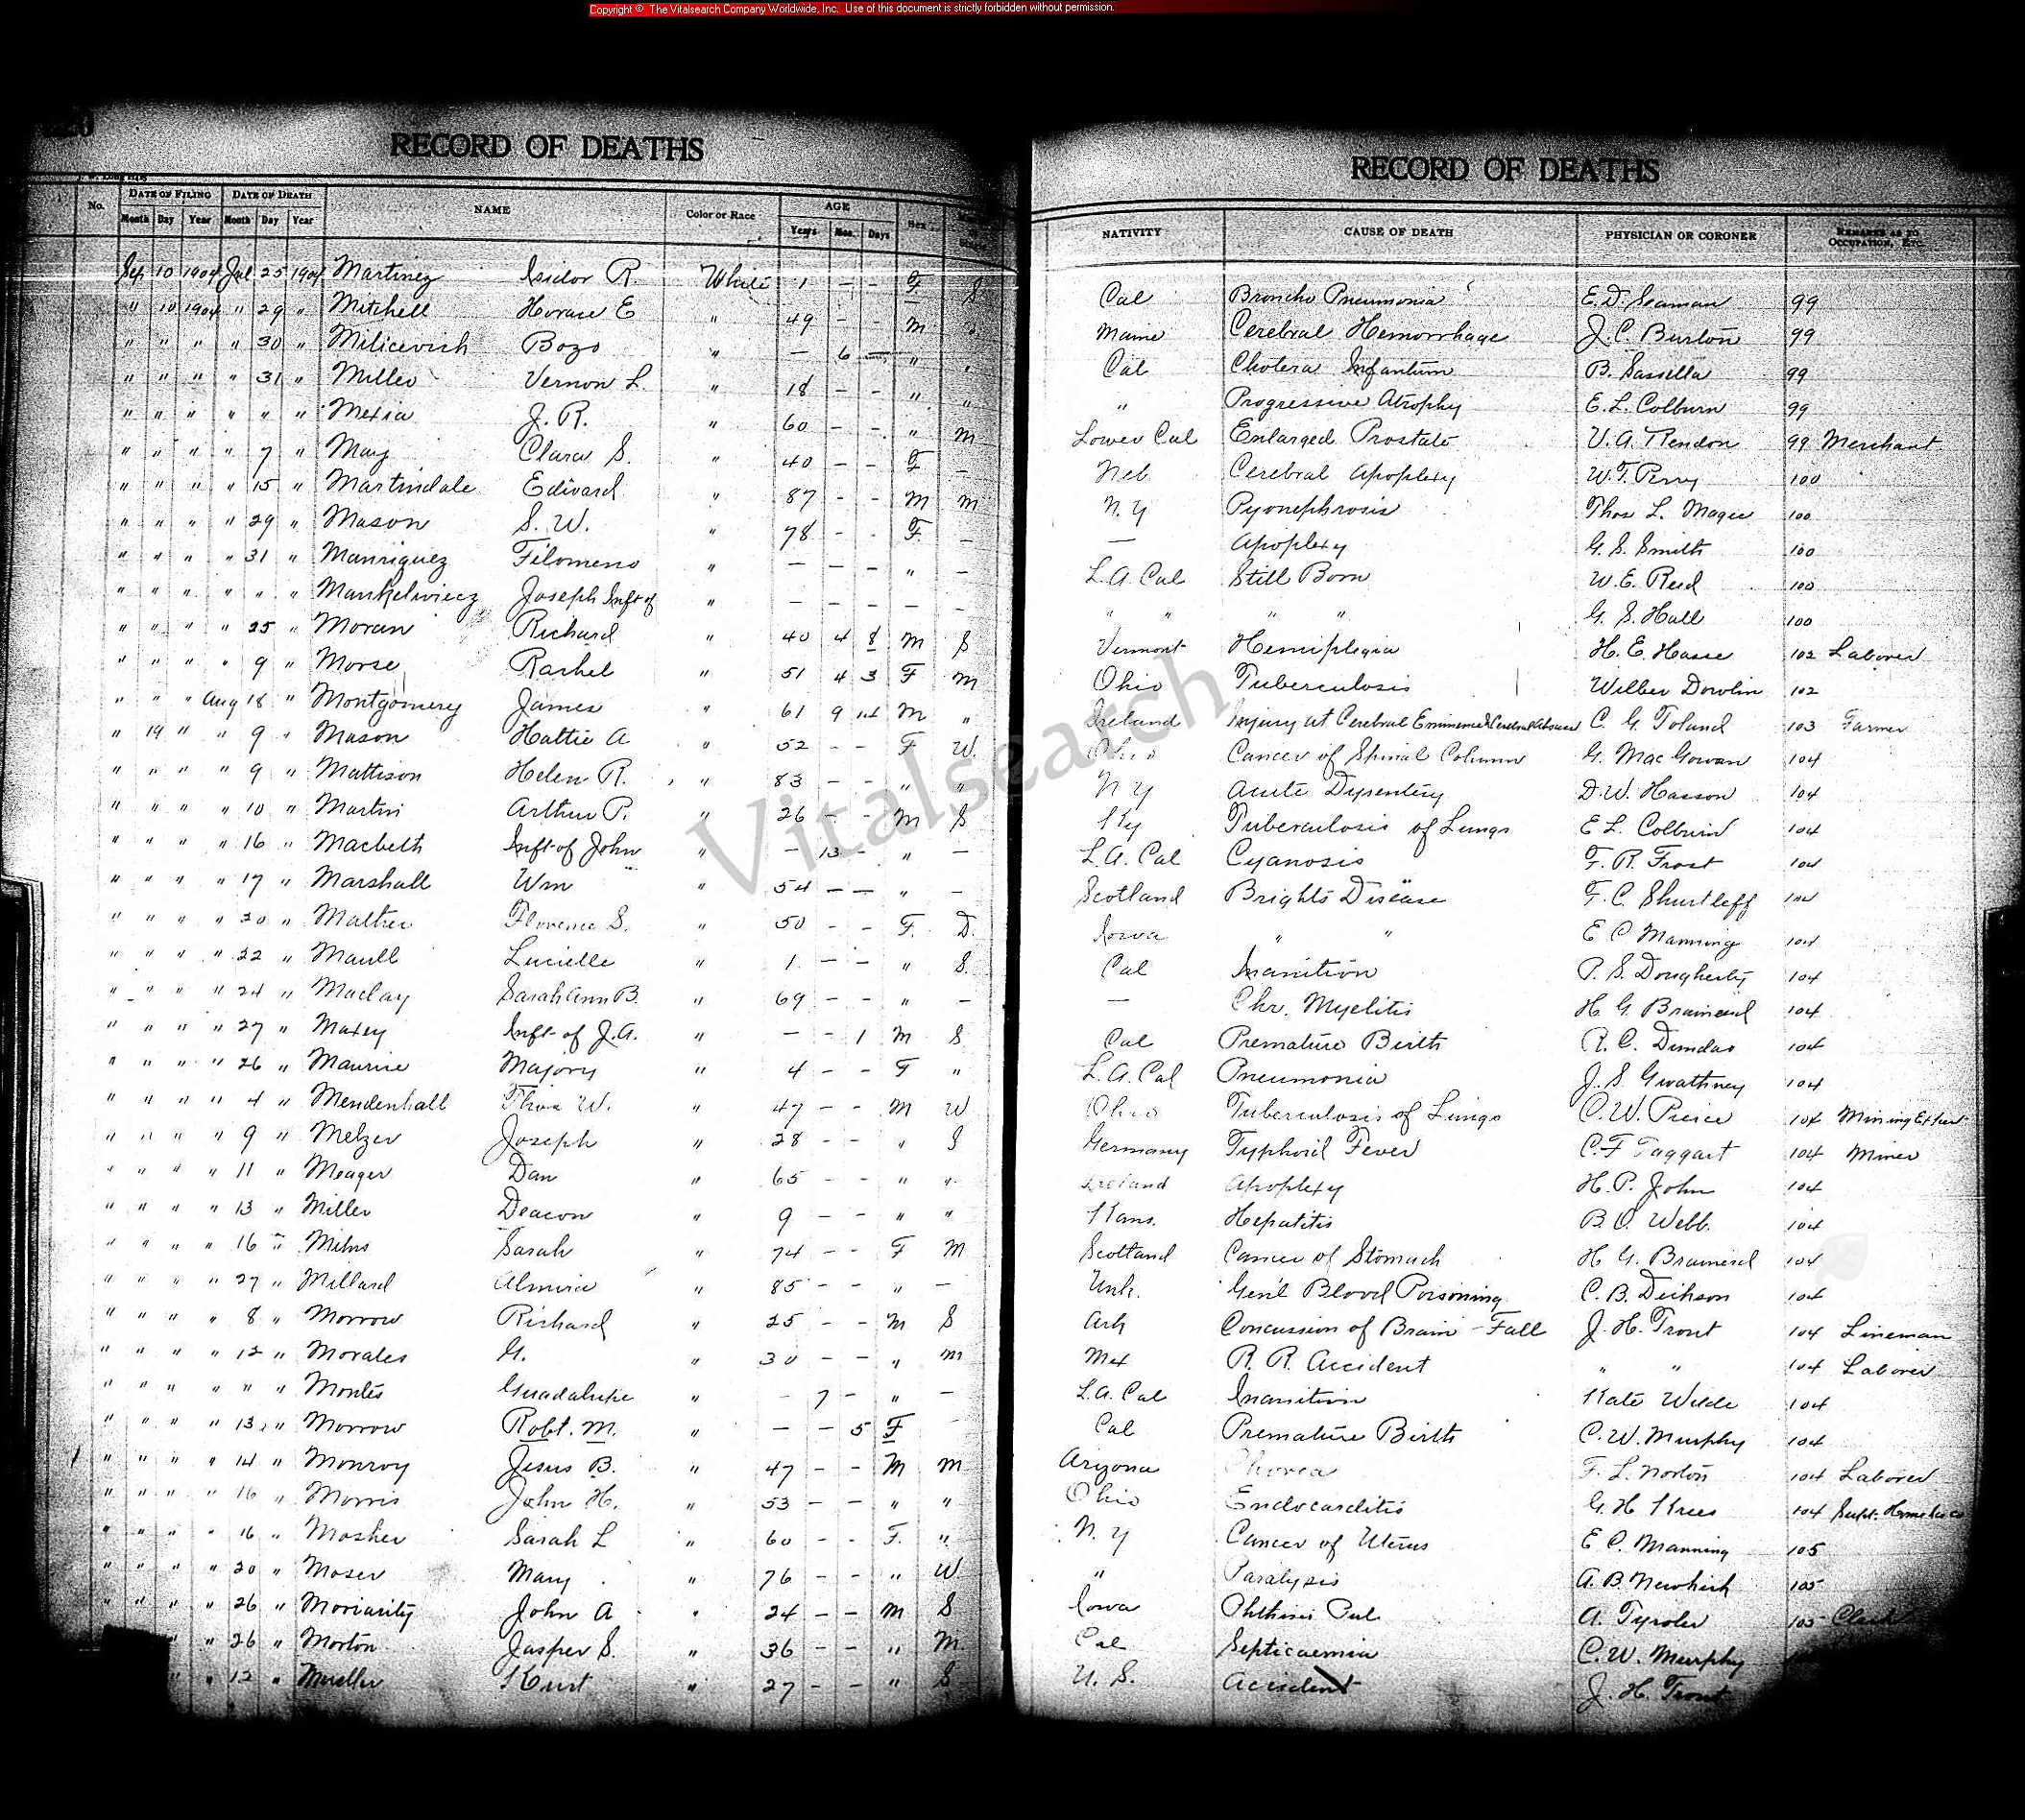 Copyright © The Vitalsearch Company Worldwide, Inc. Use of this document is strictly forbidden without permission.
RECORD OF DEATHS
RECORD OF DEATHS
No. DATE OF FILING DATE OF DEATH NAME Color or Race AGE Sex
Month Day Year Month Day Year Years Mos. Days
NATIVITY CAUSE OF DEATH PHYSICIAN OR CORONER REMARKS AS TO OCCUPATION, ETC.
Sep 10 1904 Jul 25 1904 Martinez Isidor R. White 1 — — F S Cal Broncho Pneumonia E. D. Seaman 99
" 10 1904 " 29 " Mitchell Horace E " 49 — — M Maine Cerebral Hemorrhage J. C. Burton 99
" " " " 30 " Milicevich Bozo " — 6 — " " Cal Cholera Infantum B. Sassella 99
" " " " 31 " Miller Vernon L. " 18 — — " " " Progressive Atrophy E. L. Colburn 99
" " " " " " Mexia J. R. " 60 — — " M Lower Cal Enlarged Prostate V. A. Rendon 99 Merchant
" " " " 7 " May Clara S. " 40 — — F — Neb Cerebral Apoplexy W. T. Perry 100
" " " " 15 " Martindale Edward " 87 — — M M N. Y Pyonephrosis Thos L. Magee 100
" " " " 29 " Mason S. W. " 78 — — F. — — Apoplexy G. S. Smith 100
" " " " 31 " Manriquez Filomeno " — — — " — L. A. Cal Still Born W. E. Reid 100
" " " " " " Mankelwiecz Joseph Inft of " — — — — — " " " " G. S. Hall 100
" " " " 25 " Moran Richard " 40 4 8 M S Vermont Hemiplegia H. E. Hasse 102 Laborer
" " " " 9 " Morse Rachel " 51 4 3 F M Ohio Tuberculosis Wilber Dowlin 102
" " " Aug 18 " Montgomery James " 61 9 M " Ireland Injury at Cerebral C. G. Toland 103 Farmer
" 19 " " 9 " Mason Hattie A " 52 — — F W. Ohio Cancer of Spinal Column G. Mac Gowan 104
" " " " 9 " Mattison Helen R. " 83 — — " " N Y Acute Dysentery D. W. Hasson 104
" " " " 10 " Martin Arthur P. " 26 — — M S Ky Tuberculosis of Lungs E L. Colburn 104
" " " " 16 " Macbeth Inft of John " — 13 — " — L. A. Cal Cyanosis F. R. Frost 104
" " " " 17 " Marshall Wm " 54 — — " — Scotland Brights Disease F. C. Shurtleff 104
" " " " 20 " Mather Florence S. " 50 — — F. D. Iowa " " E C Manning 104
" " " " 22 " Maull Lucielle " 1 — — " S. Cal Inanition P. S. Dougherty 104
" " " " 24 " Maclay Sarah Ann B. " 69 — — " — — Chr. Myelitis H G Brainerd 104
" " " " 27 " Maxey Inft of J. A. " — — 1 M S Cal Premature Birth R. C. Dundas 104
" " " " 26 " Maurice Majory " 4 — — F " L. A. Cal Pneumonia J. S. Gwathney 104
" " " " 4 " Mendenhall Thos W. " 47 — — M W Ohio Tuberculosis of Lungs C. W. Peirce 104 Mining Expert
" " " " 9 " Melzer Joseph " 28 — — " S Germany Typhoid Fever C. F Taggart 104 Miner
" " " " 11 " Meager Dan " 65 — — " " Ireland Apoplexy H. P. John 104
" " " " 13 " Miller Deacon " 9 — — " " Kans. Hepatitis B. O. Webb. 104
" " " " 16 " Milns Sarah " 74 — — F M Scotland Cancer of Stomach H G. Brainerd 104
" " " " 27 " Millard Almira " 85 — — " — Unk. Gen'l Blood Poisoning C. B. Dickson 104
" " " " 8 " Morrow Richard " 25 — — M S Ark Concussion of Brain - Fall J. H. Trout 104 Lineman
" " " " 12 " Morales G. " 30 — — " M Mex R. R. Accident " " 104 Laborer
" " " " " " Montes Guadalupe " — 7 — " — L. A. Cal Inanition Kate Wilde 104
" " " " 13 " Morrow Robt. M. " — — 5 F Cal Premature Birth C. W. Murphy 104
" " " " 14 " Monroy Jesus B. " 47 — — M M Arizona Chorea F. L. Norton 104 Laborer
" " " " 16 " Morris John H. " 53 — — " " Ohio Endocarditis G. H Kress 104 Supt.
" " " " 16 " Mosher Sarah L " 60 — — F. " N. Y Cancer of Uterus E C. Manning 105
" " " " 20 " Moser Mary " 76 — — " W " Paralysis A. B. Newkirk 105
" " " " 26 " Moriarity John A " 24 — — M S Iowa Phthisis Pul. A. Tyroler 105 Clerk
" " 26 " Morton Jasper S. " 36 — — " M. Cal Septicaemia C. W. Murphy
" " 12 " Mueller Kurt " 27 — — " S U. S. Accident J. H. Trout
Vitalsearch